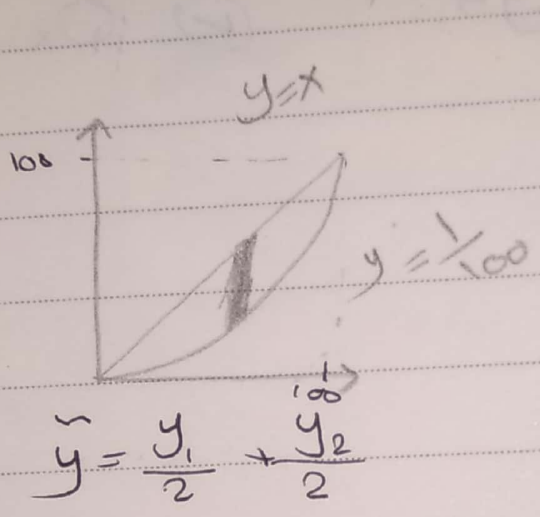 y=x
100
y = 1/100
100
ỹ = y₁/2 + y₂/2